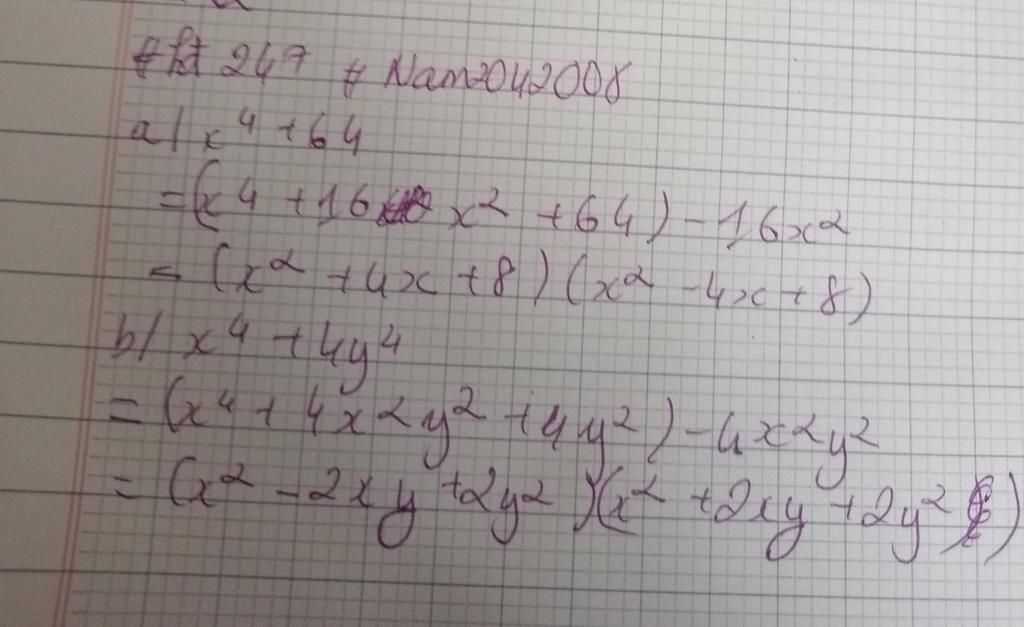 247 # Nam2042008
a/ x⁴ + 64
= (x⁴ + 16 x² + 64) - 16x²
= (x² + 4x + 8) (x² - 4x + 8)
b/ x⁴ + 4y⁴
= (x⁴ + 4x²y² + 4y²) - 4x²y²
= (x² - 2xy + 2y²)(x² + 2xy + 2y²)